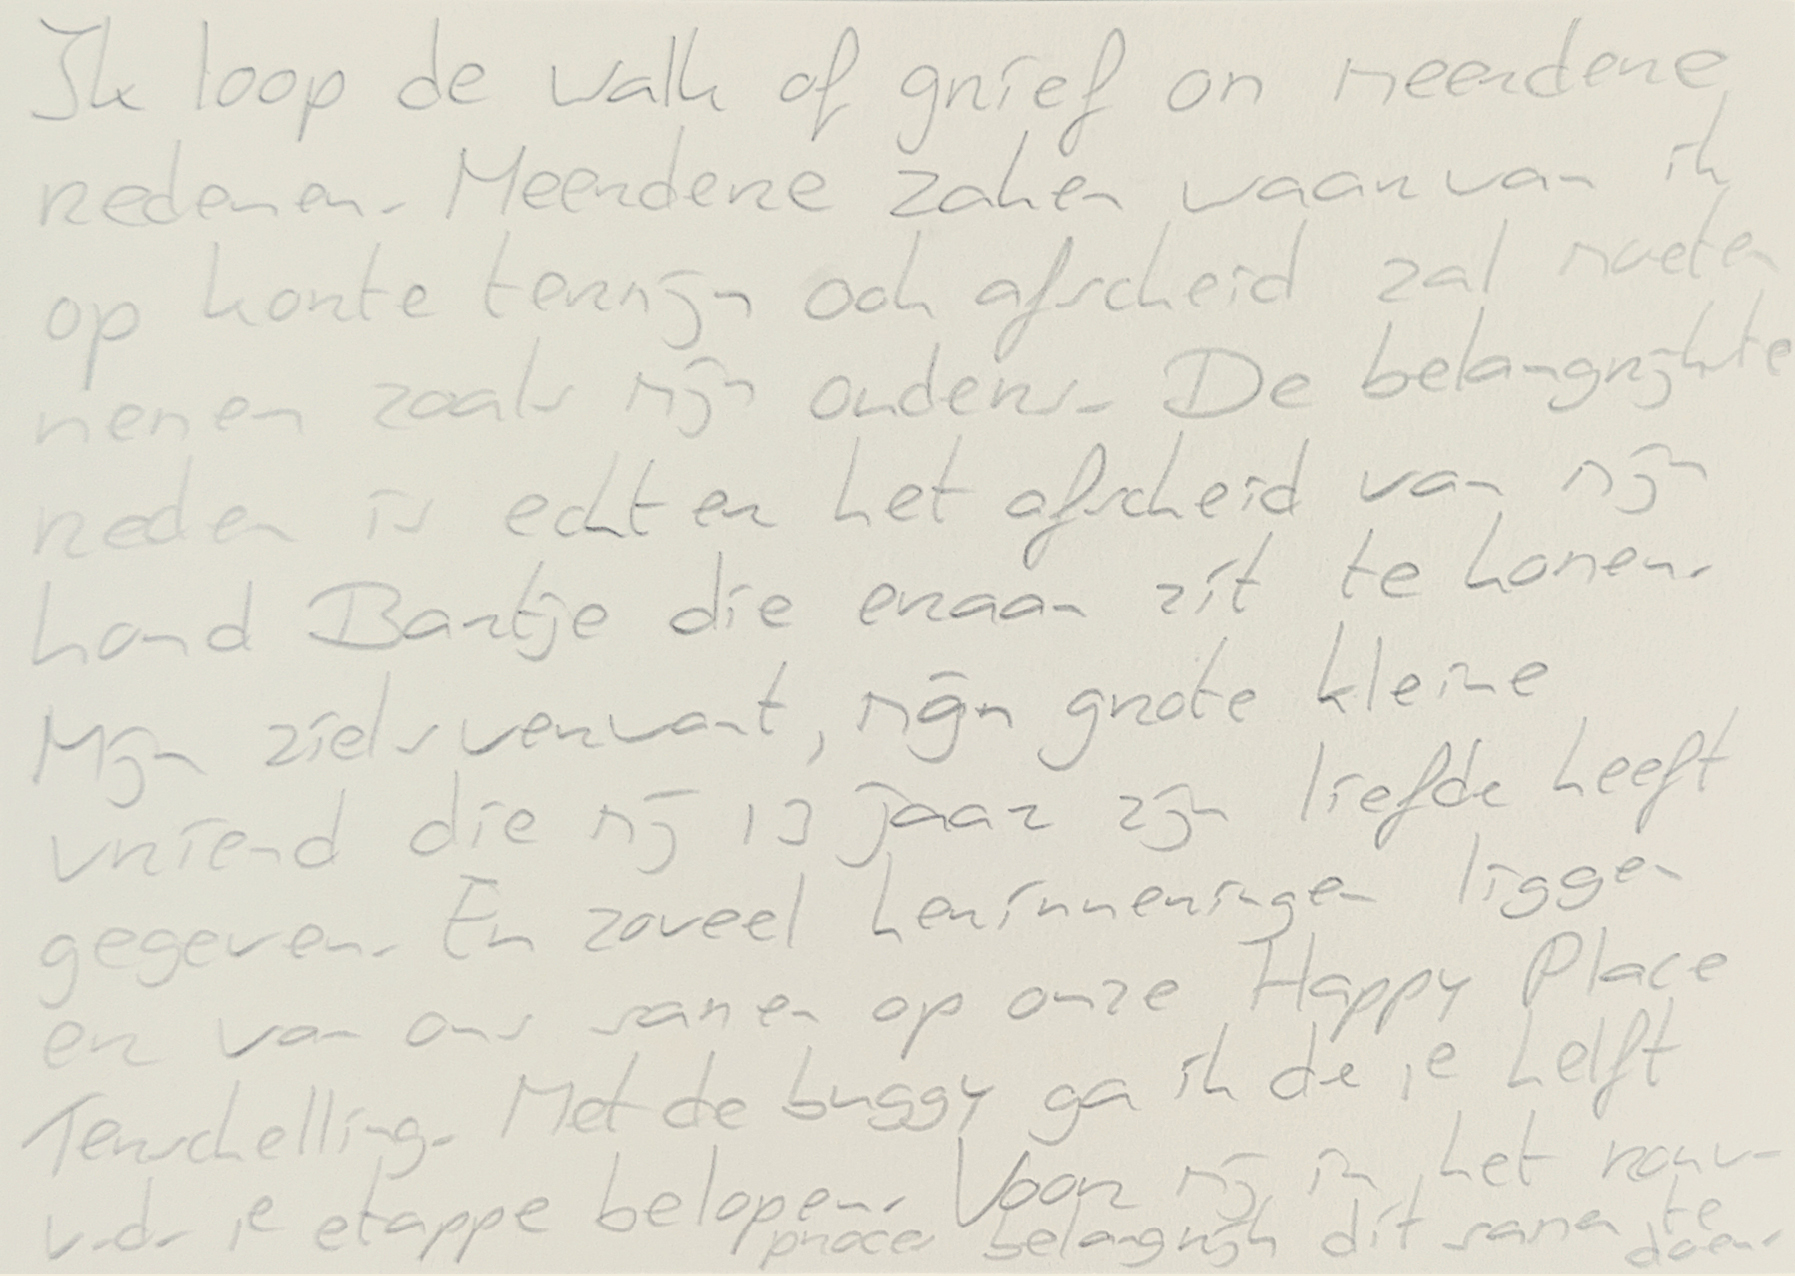 Ik loop de walk of grief om meerdere
redenen. Meerdere zaken waarvan ik
op korte termijn ook afscheid zal moeten
nemen zoals mijn ouders. De belangrijkste
reden is echter het afscheid van mijn
hond Bartje die eraan zit te komen.
Mijn zielsverwant, mijn grote kleine
vriend die mij 13 jaar zijn liefde heeft
gegeven. En zoveel herinneringen liggen
er van ons samen op onze Happy Place
Terschelling. Met de buggy ga ik de 1e helft
v.d. 1e etappe belopen. Voor mij in het rouw-
proces belangrijk dit samen te
doen.